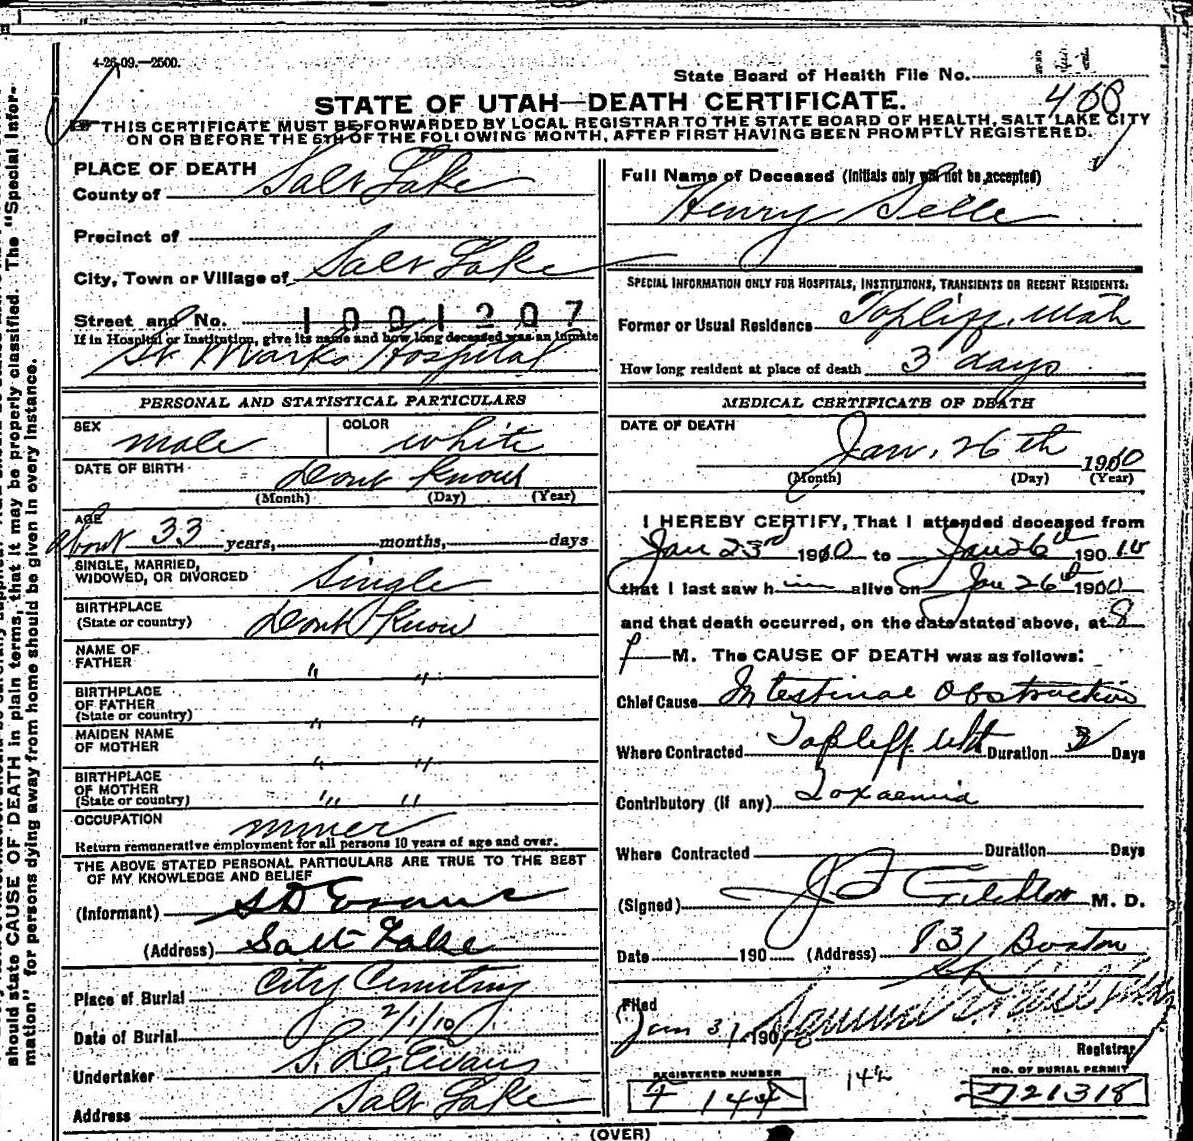 4-26-09.—2500.
State Board of Health File No.
408
STATE OF UTAH—DEATH CERTIFICATE.
THIS CERTIFICATE MUST BE FORWARDED BY LOCAL REGISTRAR TO THE STATE BOARD OF HEALTH, SALT LAKE CITY
ON OR BEFORE THE 5TH OF THE FOLLOWING MONTH, AFTER FIRST HAVING BEEN PROMPTLY REGISTERED.
should state CAUSE OF DEATH in plain terms, that it may be properly classified. The "Special Infor-
mation" for persons dying away from home should be given in every instance.
PLACE OF DEATH
County of Salt Lake
Precinct of
City, Town or Village of Salt Lake
Street and No. 1001207
If in Hospital or Institution, give its name and how long deceased was an inmate
St. Marks Hospital
PERSONAL AND STATISTICAL PARTICULARS
SEX male COLOR white
DATE OF BIRTH Dont Know
(Month) (Day) (Year)
AGE
about 33 years, months, days
SINGLE, MARRIED,
WIDOWED, OR DIVORCED Single
BIRTHPLACE
(State or country) Dont Know
NAME OF
FATHER " "
BIRTHPLACE
OF FATHER
(State or country) " "
MAIDEN NAME
OF MOTHER " "
BIRTHPLACE
OF MOTHER
(State or country) " "
OCCUPATION miner
Return remunerative employment for all persons 10 years of age and over.
THE ABOVE STATED PERSONAL PARTICULARS ARE TRUE TO THE BEST
OF MY KNOWLEDGE AND BELIEF
(Informant) S D Evans
(Address) Salt Lake
Place of Burial City Cemetery
Date of Burial 2/1/10
Undertaker S. D. Evans
Address Salt Lake
Full Name of Deceased (Initials only will not be accepted)
Henry Selle
SPECIAL INFORMATION ONLY FOR HOSPITALS, INSTITUTIONS, TRANSIENTS OR RECENT RESIDENTS.
Former or Usual Residence Topliff, Utah
How long resident at place of death 3 days
MEDICAL CERTIFICATE OF DEATH
DATE OF DEATH
Jan. 26th 1910
(Month) (Day) (Year)
I HEREBY CERTIFY, That I attended deceased from
Jan 23rd 1910 to Jan 26th 190 10
that I last saw h im alive on Jan 26th 1910
and that death occurred, on the date stated above, at 8
P M. The CAUSE OF DEATH was as follows:
Chief Cause Intestinal Obstruction
Where Contracted Topliff Utah Duration 3 Days
Contributory (if any) Toxaemia
Where Contracted Duration Days
(Signed) J F M. D.
Date 190 (Address) Boston
Filed
Jan 31 1910
Registrar
REGISTERED NUMBER 144 NO. OF BURIAL PERMIT
144 21318
(OVER)